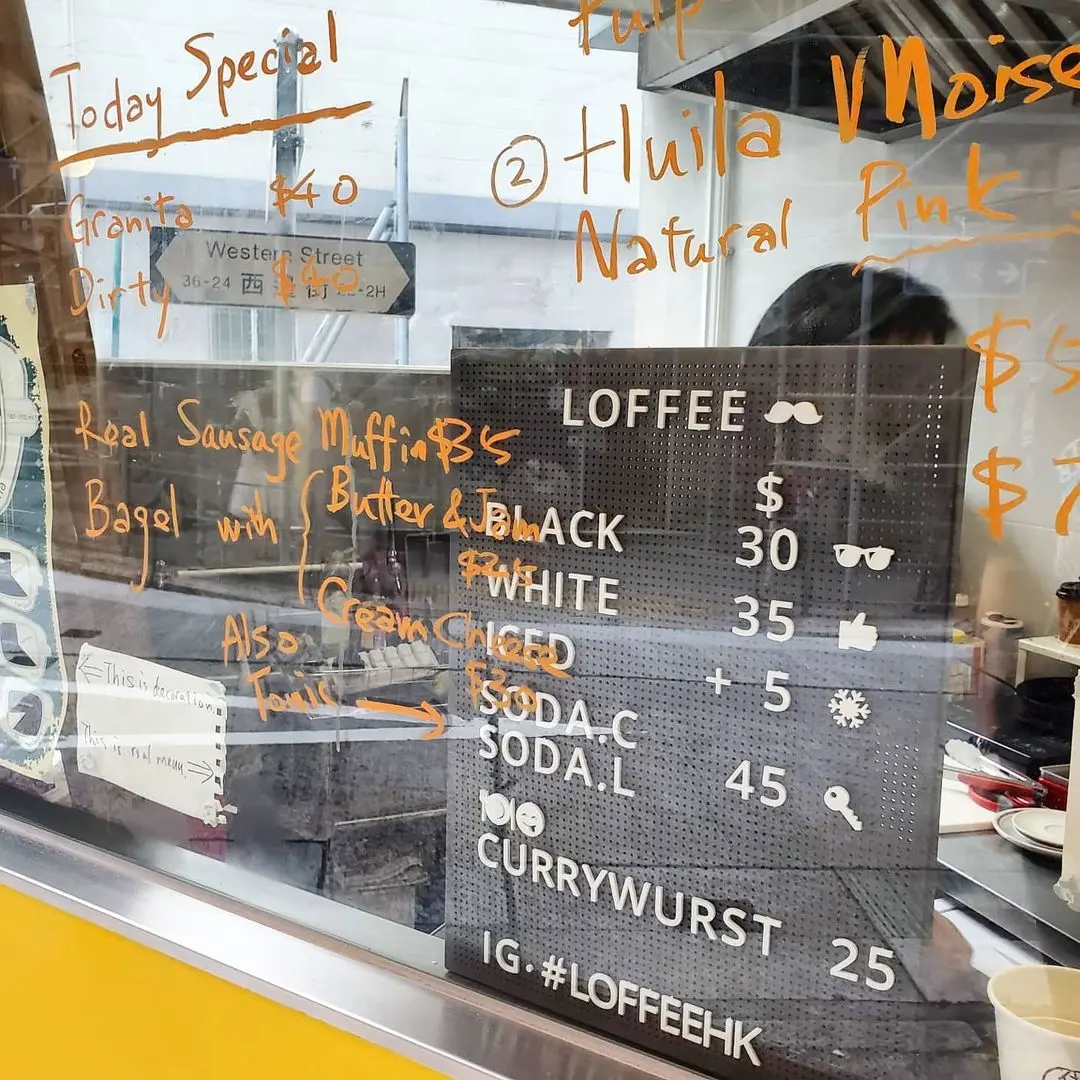 Today Special
Granita $40
Dirty $40
Real Sausage Muffin $35
Bagel with { Butter & Jam
$25
Cream Cheese
$30
Also
Tonic →
Pulp
② Huila
Natural Pink
$5
$7
Western Street
36-24 西 街 -2H
← This is decoration
This is not menu →
LOFFEE
$
BLACK 30
WHITE 35
ICED + 5
SODA.C
SODA.L 45
CURRYWURST 25
IG.#LOFFEEHK